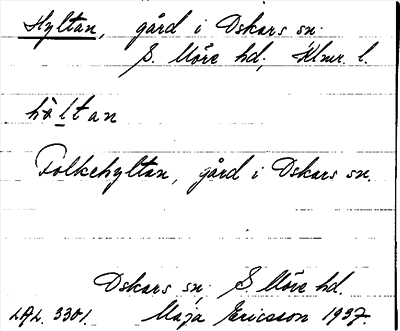 Hyltan, gård i Oskars sn.
S. Möre hd; Klmr. l.
hö̀ḷtan
Folkehyltan, gård i Oskars sn.
Oskars sn; S Möre hd.
LAL. 3301. Maja Ericsson 1937